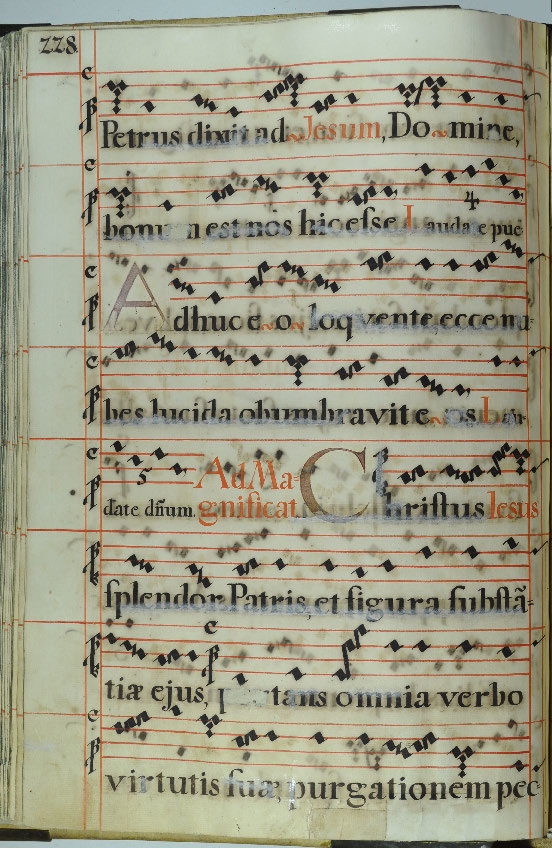 228
Petrus dixit ad Jesum, Domine,
bonum est nos hic esse Laudate pue
4
Adhuc eo loquente, ecce nu-
bes lucida obumbravit eos Lau-
5
date dñum. Ad Ma-
gnificat. Christus Iesus
splendor Patris, et figura substã-
tiæ ejus, portans omnia verbo
virtutis suæ, purgationem pec